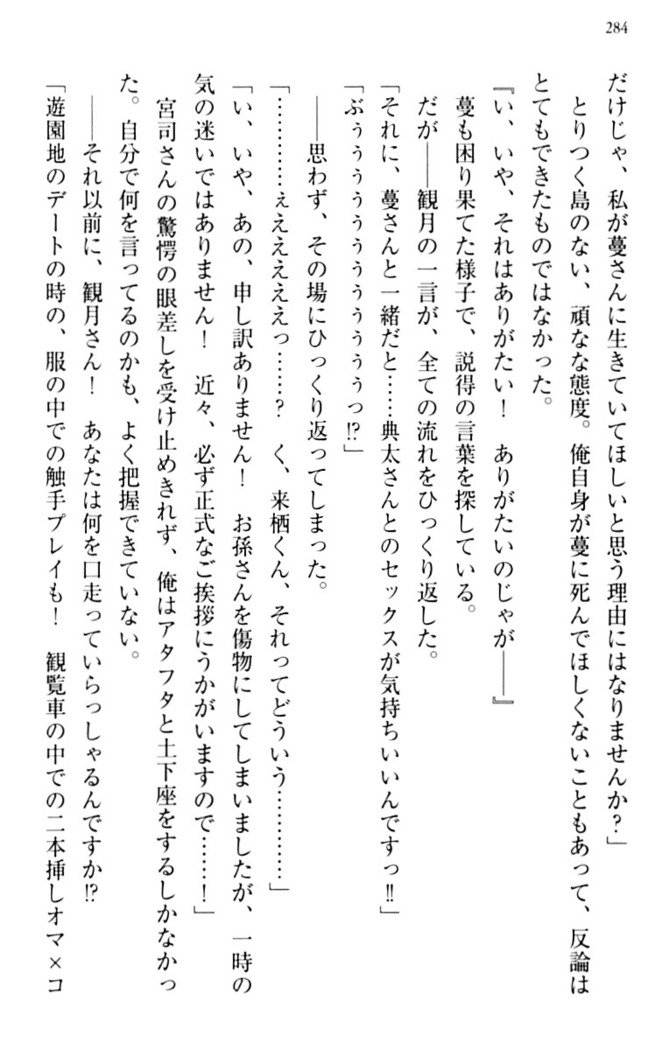 284
だけじゃ、私が蔓さんに生きていてほしいと思う理由にはなりませんか？」
　とりつく島のない、頑なな態度。俺自身が蔓に死んでほしくないこともあって、反論は
とてもできたものではなかった。
『い、いや、それはありがたい！　ありがたいのじゃが――』
　蔓も困り果てた様子で、説得の言葉を探している。
　だが――観月の一言が、全ての流れをひっくり返した。
「それに、蔓さんと一緒だと……典太さんとのセックスが気持ちいいんですっ‼」
「ぶぅぅぅぅぅぅぅぅぅぅぅっ⁉」
　――思わず、その場にひっくり返ってしまった。
「…………ぇえええええっ……？　く、来栖くん、それってどういう…………」
「い、いや、あの、申し訳ありません！　お孫さんを傷物にしてしまいましたが、一時の
気の迷いではありません！　近々、必ず正式なご挨拶にうかがいますので……！」
　宮司さんの驚愕の眼差しを受け止めきれず、俺はアタフタと土下座をするしかなかっ
た。自分で何を言ってるのかも、よく把握できていない。
　――それ以前に、観月さん！　あなたは何を口走っていらっしゃるんですか⁉
「遊園地のデートの時の、服の中での触手プレイも！　観覧車の中での二本挿しオマ×コ